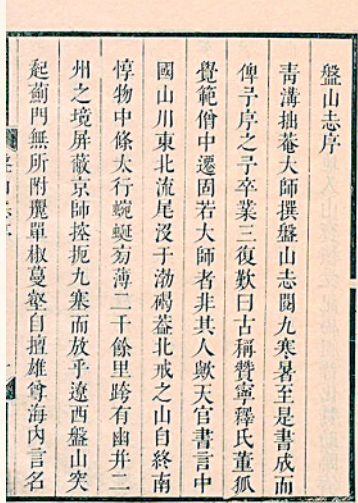 盤山志序
青溝拙菴大師撰盤山志閱九寒暑至是書成而
俾予序之予卒業三復歎曰古稱贊寧釋氏董狐
覺範僧中遷固若大師者非其人歟天官書言中
國山川東北流尾沒于渤碣葢北戒之山自終南
惇物中條太行蜿蜒旁薄二千餘里跨有幽幷二
州之境屏蔽京師控扼九塞而放乎遼西盤山突
起薊門無所附麗單椒蔓壑自擅雄尊海內言名